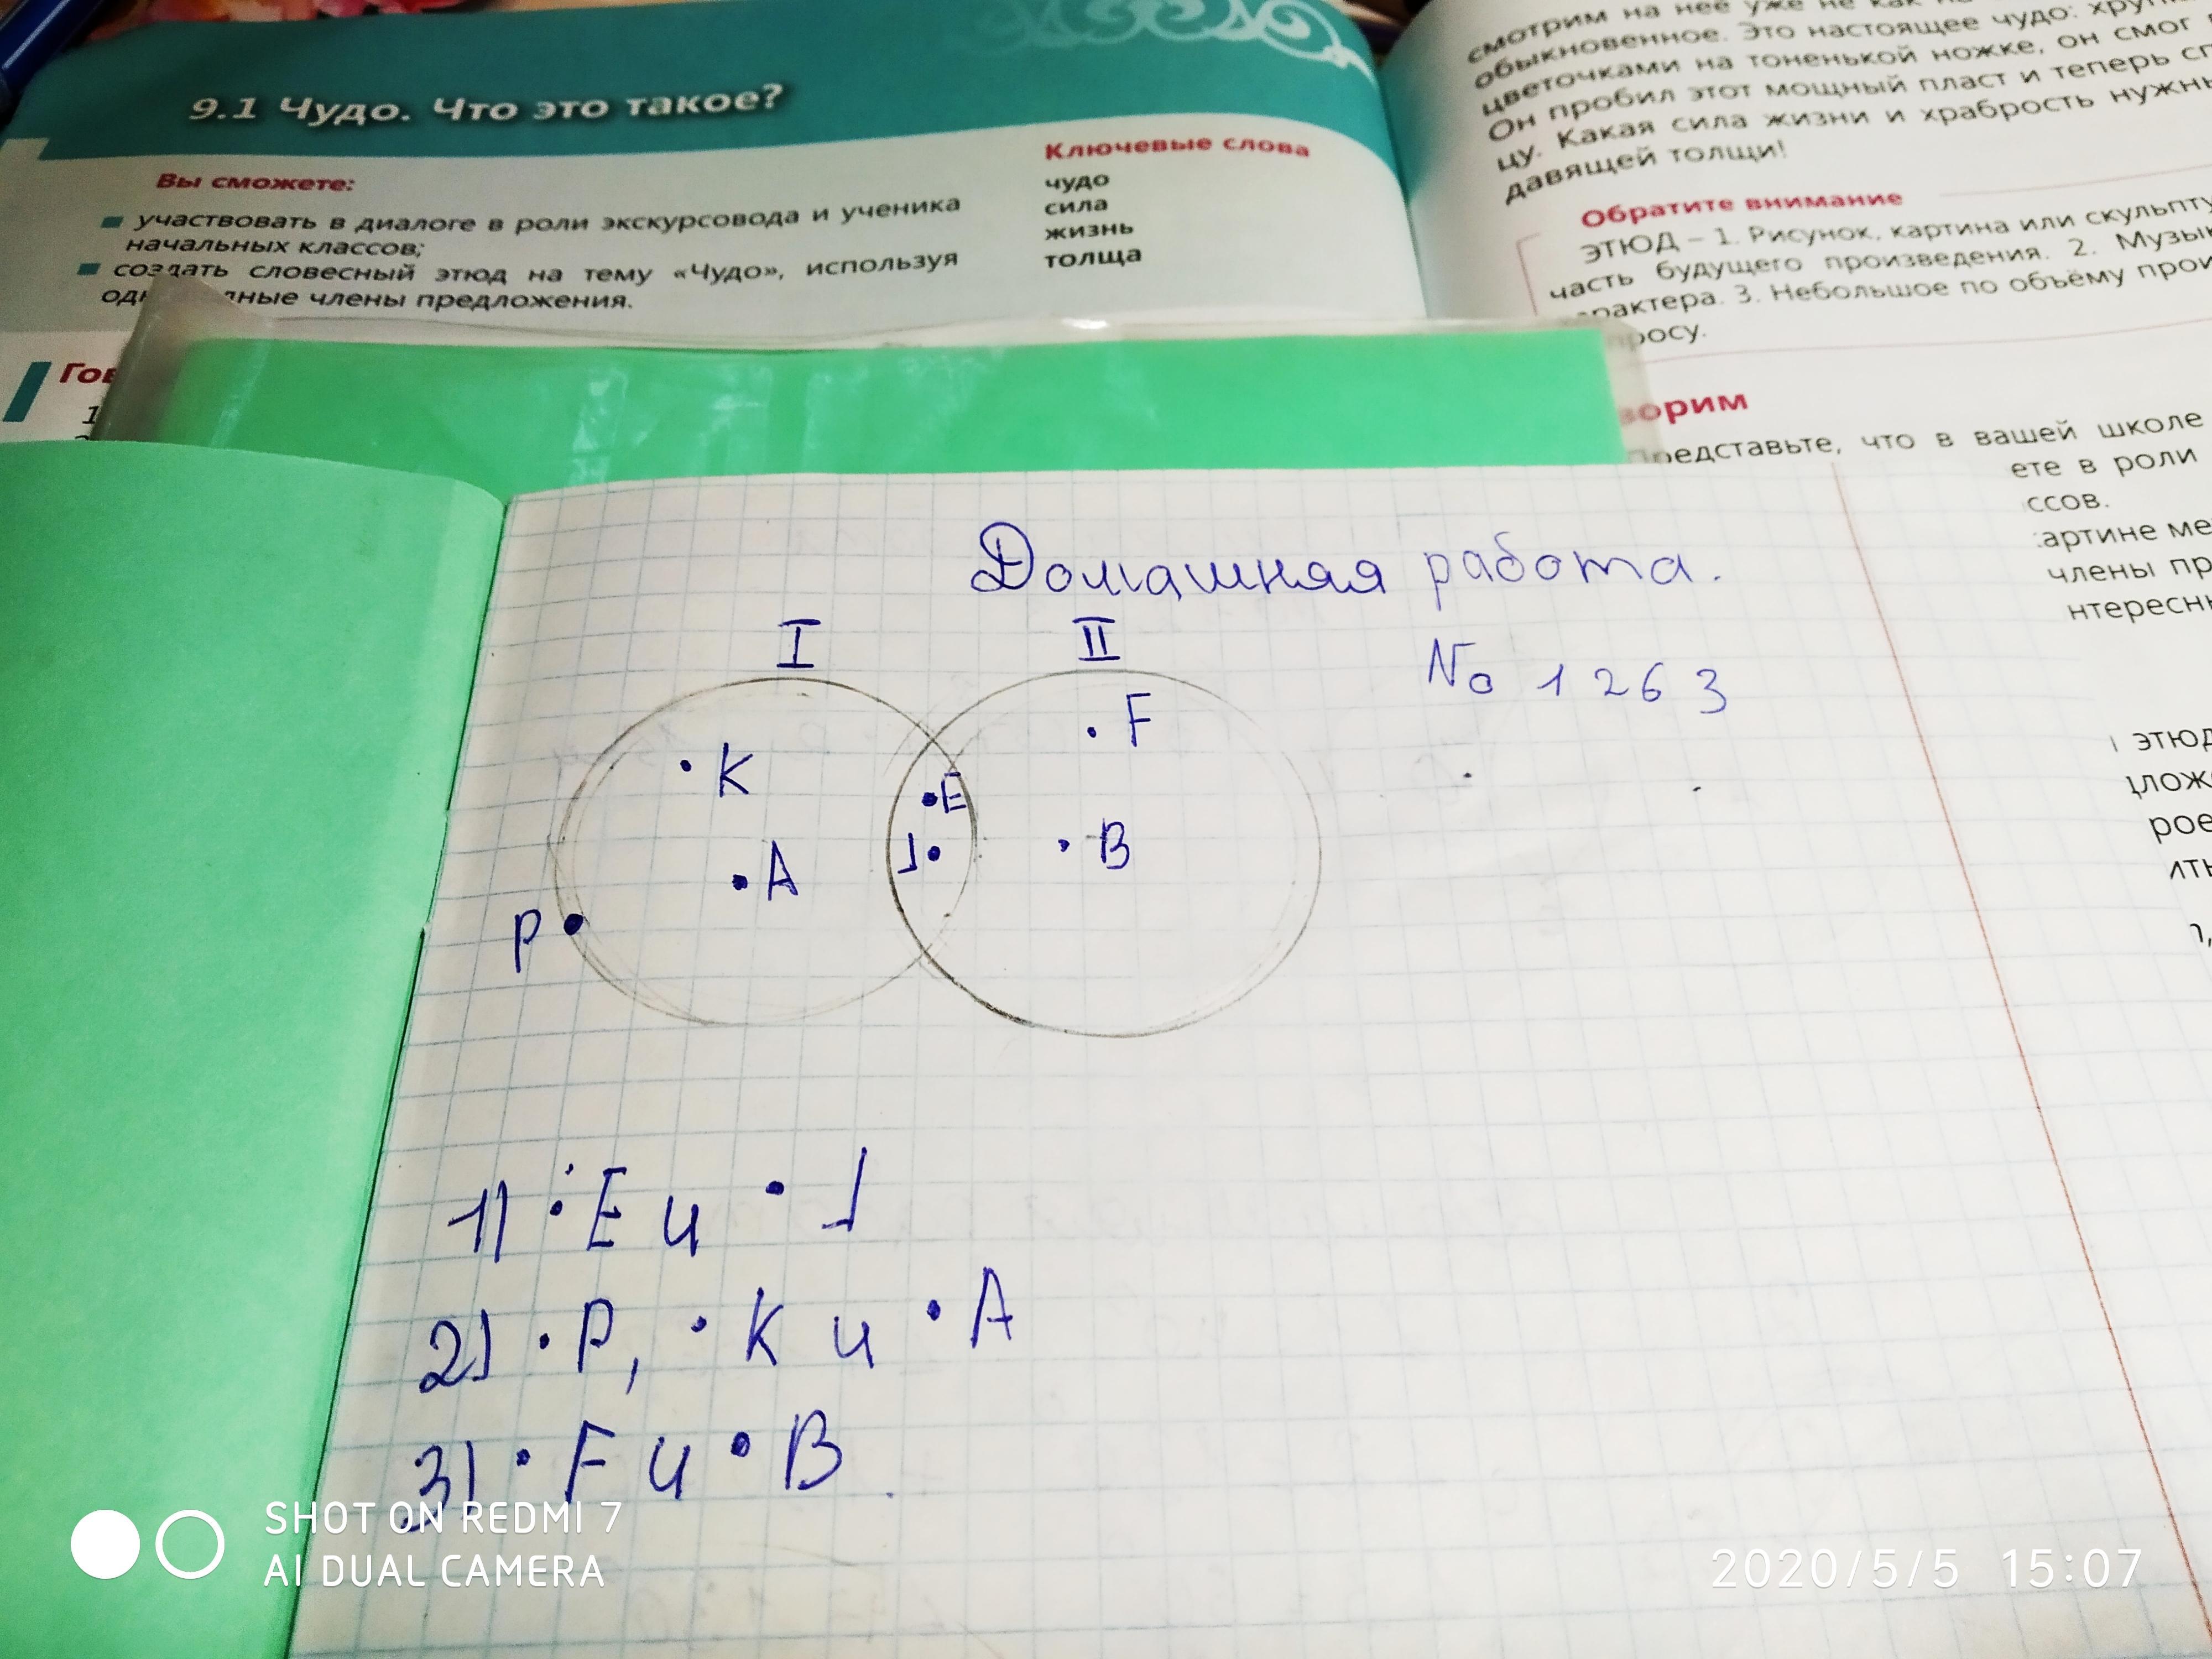 9.1 Чудо. Что это такое?
Вы сможете:
участвовать в диалоге в роли экскурсовода и ученика
начальных классов;
создать словесный этюд на тему «Чудо», используя
члены предложения.
Ключевые слова
чудо
сила
жизнь
толща
смотрим на неё уже не как на
обыкновенное. Это настоящее чудо:
цветочками на тоненькой ножке, он смог
Он пробил этот мощный пласт и теперь
цу. Какая сила жизни и храбрость
давящей толщи!
Обратите внимание
ЭТЮД – 1. Рисунок, картина или
часть будущего произведения. 2.
3. Небольшое по объёму
Представьте, что в вашей школе
ете в роли
ссов.
члены
Домашняя работа.
№ 1263
I II
K
F
E
J
B
A
P
1) • E и • J
2) • P, • K и • A
3) • F и • B.
SHOT ON REDMI 7
AI DUAL CAMERA
2020/5/5 15:07